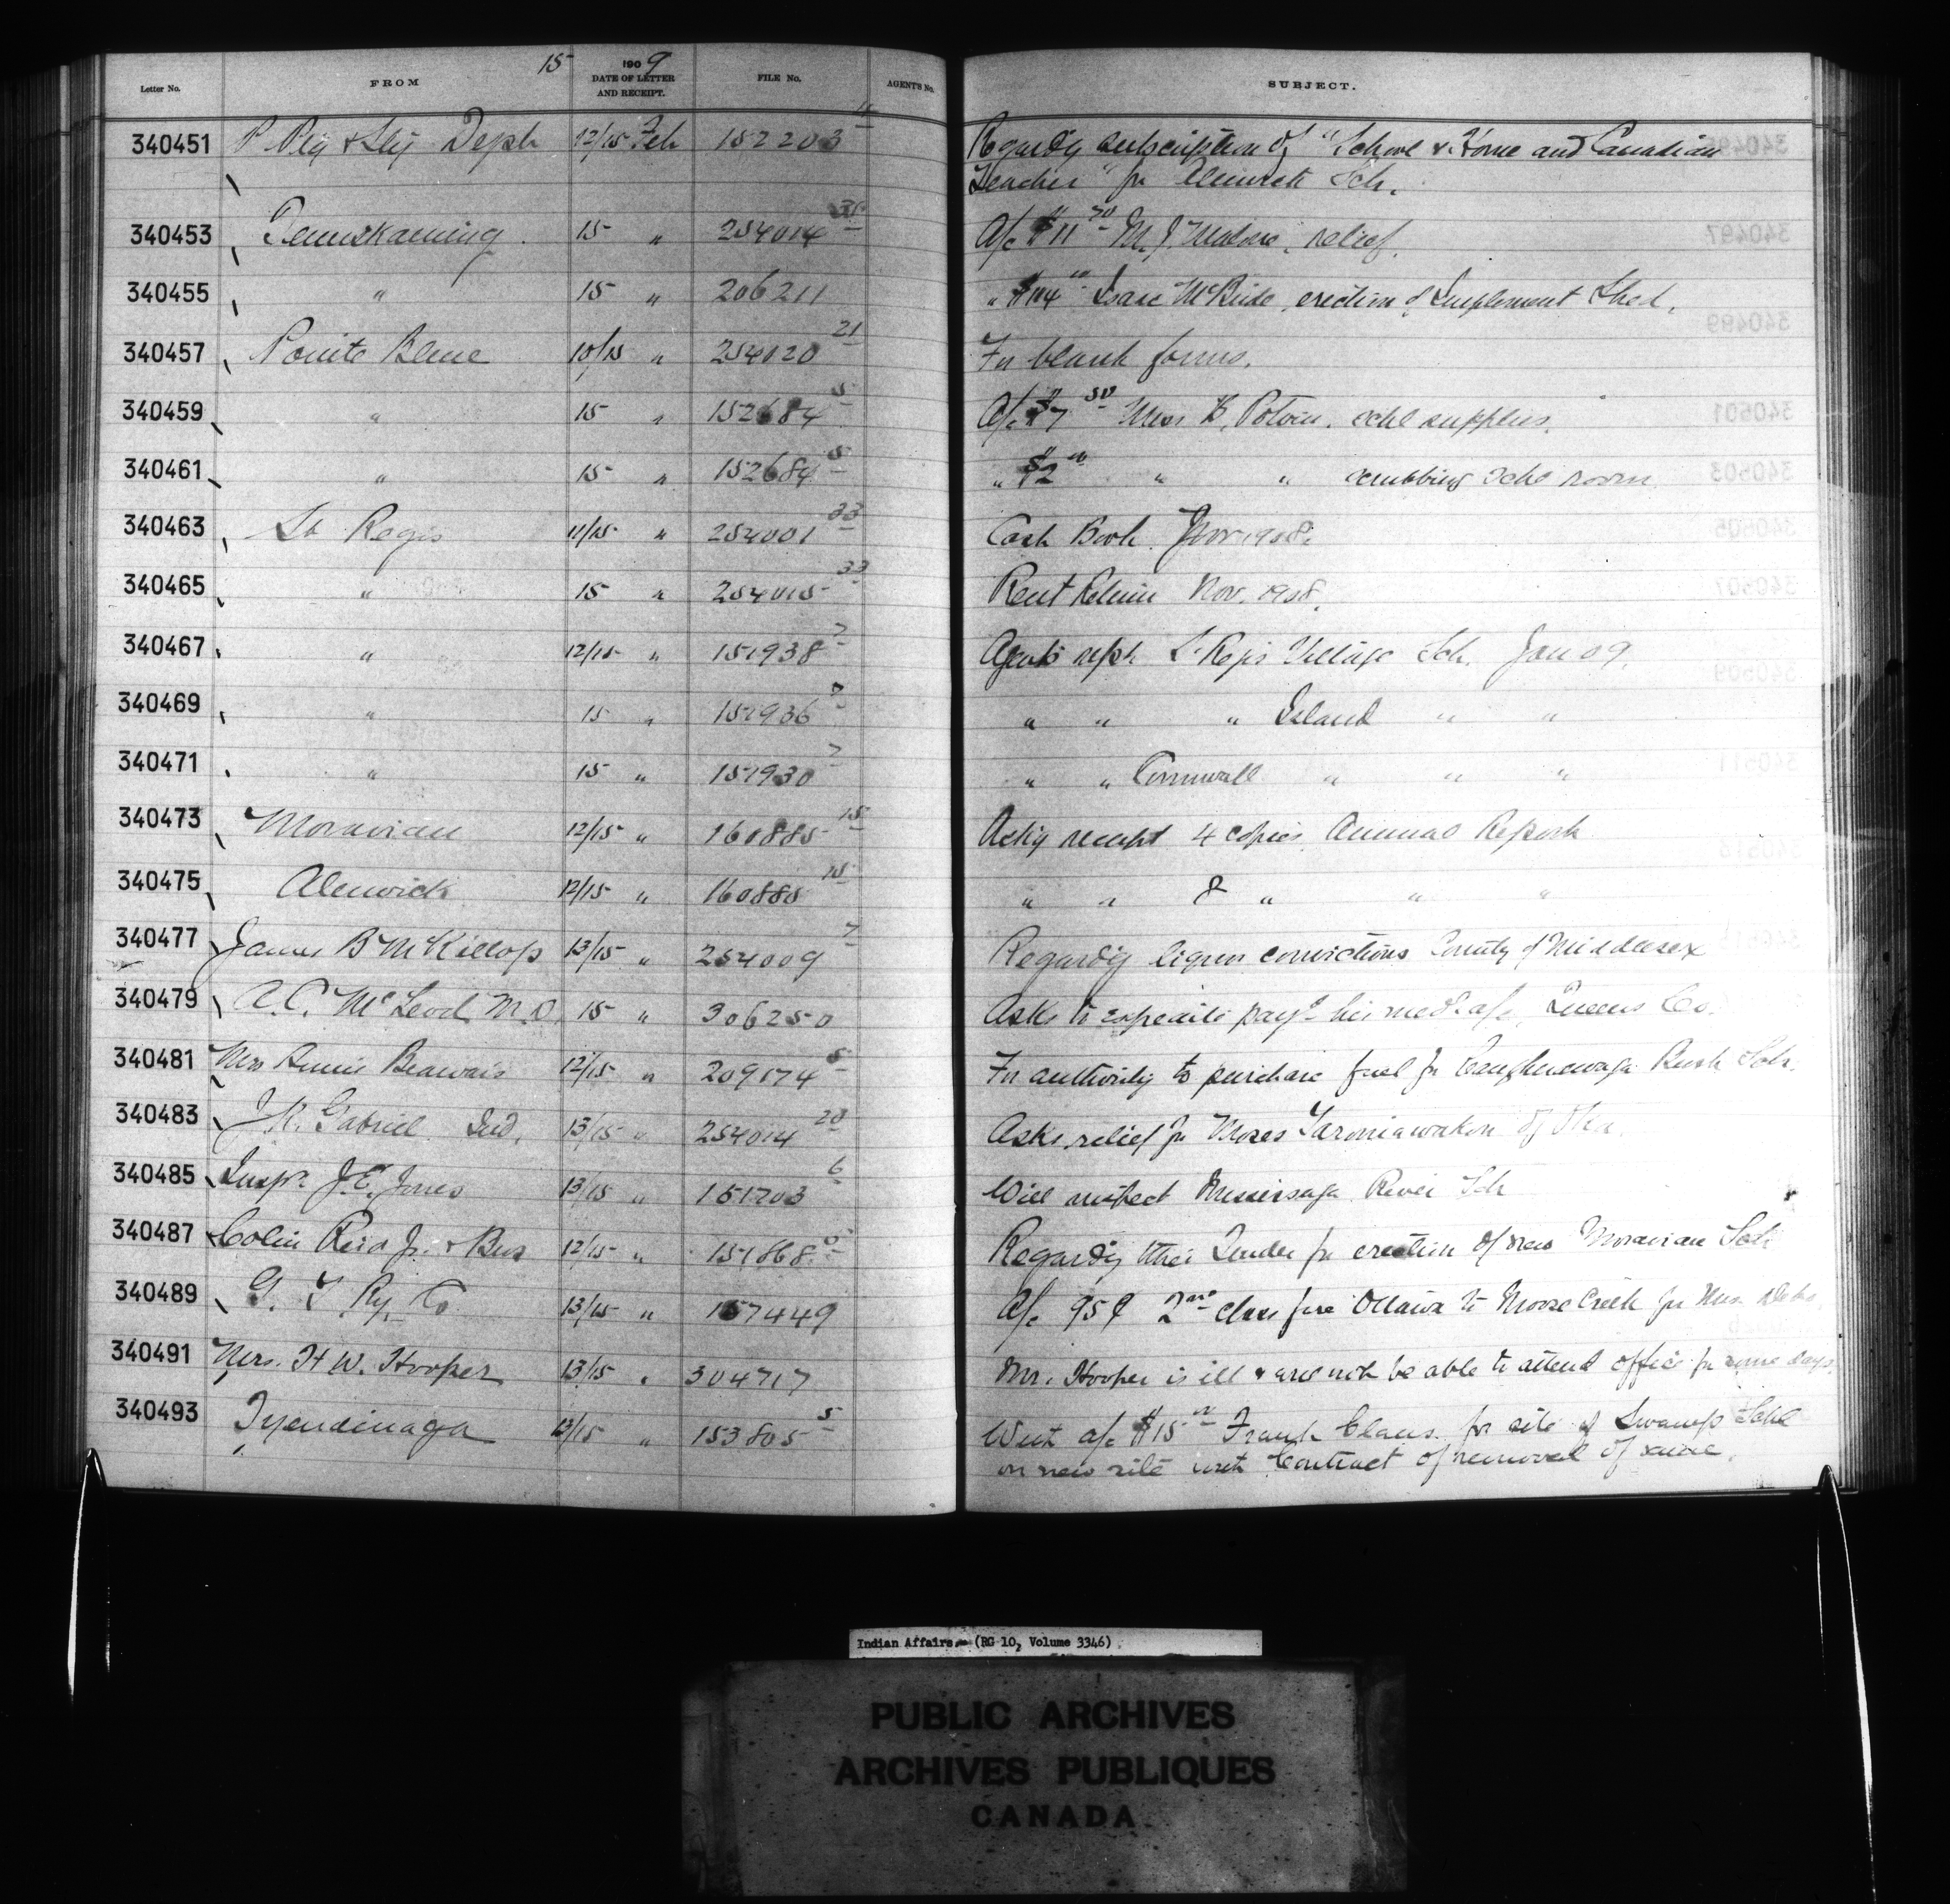 15 1909
Letter No. FROM DATE OF LETTER AND RECEIPT. FILE No. AGENT'S No. SUBJECT.
340451 P. Ptg & Sty Dept 12/15 Feb 152203 11 Regardg subscription of "School & Home and Canadian
Teacher" for Alnwick Sch.
340453 Temiskaming 15 " 254014 35 A/c $11 50 M. J. Malone, relief.
340455 " 15 " 206211 " $104 00 Isaac McBride, erection of Implement Shed.
340457 Pointe Bleue 10/15 " 254020 21 For blank forms.
340459 " 15 " 152684 5 A/c $7 50 Miss B. Potvin. schl supplies.
340461 " 15 " 152684 5 " $2 00 " " scrubbing schl room
340463 St Regis 11/15 " 254001 33 Cash Book Nov 1908.
340465 " 15 " 254015 33 Rent Return Nov. 1908.
340467 " 12/15 " 151938 7 Agents rept St Regis Village Sch. Jan 09.
340469 " 15 " 151936 7 " " " Island " "
340471 " 15 " 151930 7 " " Cornwall " " "
340473 Moravian 12/15 " 160885 15 Ackg receipt 4 copies Annual Report
340475 Alnwick 12/15 " 160885 15 " " 8 " " "
340477 James B McKillop 13/15 " 254009 7 Regardg liquor convictions County of Middlesex
340479 A. C. McLeod M.D. 15 " 306250 Asks to expedite payt his med. a/c, Queens Co.
340481 Mrs Annie Beauvais 12/15 " 209174 5 For authority to purchase fuel for Caughnawaga Bush Sch.
340483 J K. Gabriel Ind. 13/15 " 254014 20 Asks relief for Moses of Oka.
340485 Insp. J.E. Jones 13/15 " 151203 6 Will inspect Mississaga River Sch
340487 Colin Reid Jr. & Bros 12/15 " 151868 Regardg their Tender for erection of new Moravian Sch
340489 G. T Ry. Co. 13/15 " 157449 A/c 95¢ 2nd class fare Ottawa to Moose Creek for Mrs.
340491 Mrs. H W. Hooper 13/15 " 304717 Mr. Hooper is ill & will not be able to attend office for some days.
340493 Tyendinaga 13/15 " 153805 5 With a/c $15 00 Frank Claus for site of Swamp Schl
on new site with Contract of removal of same.
Indian Affairs. (RG 10, Volume 3346)
PUBLIC ARCHIVES
ARCHIVES PUBLIQUES
CANADA